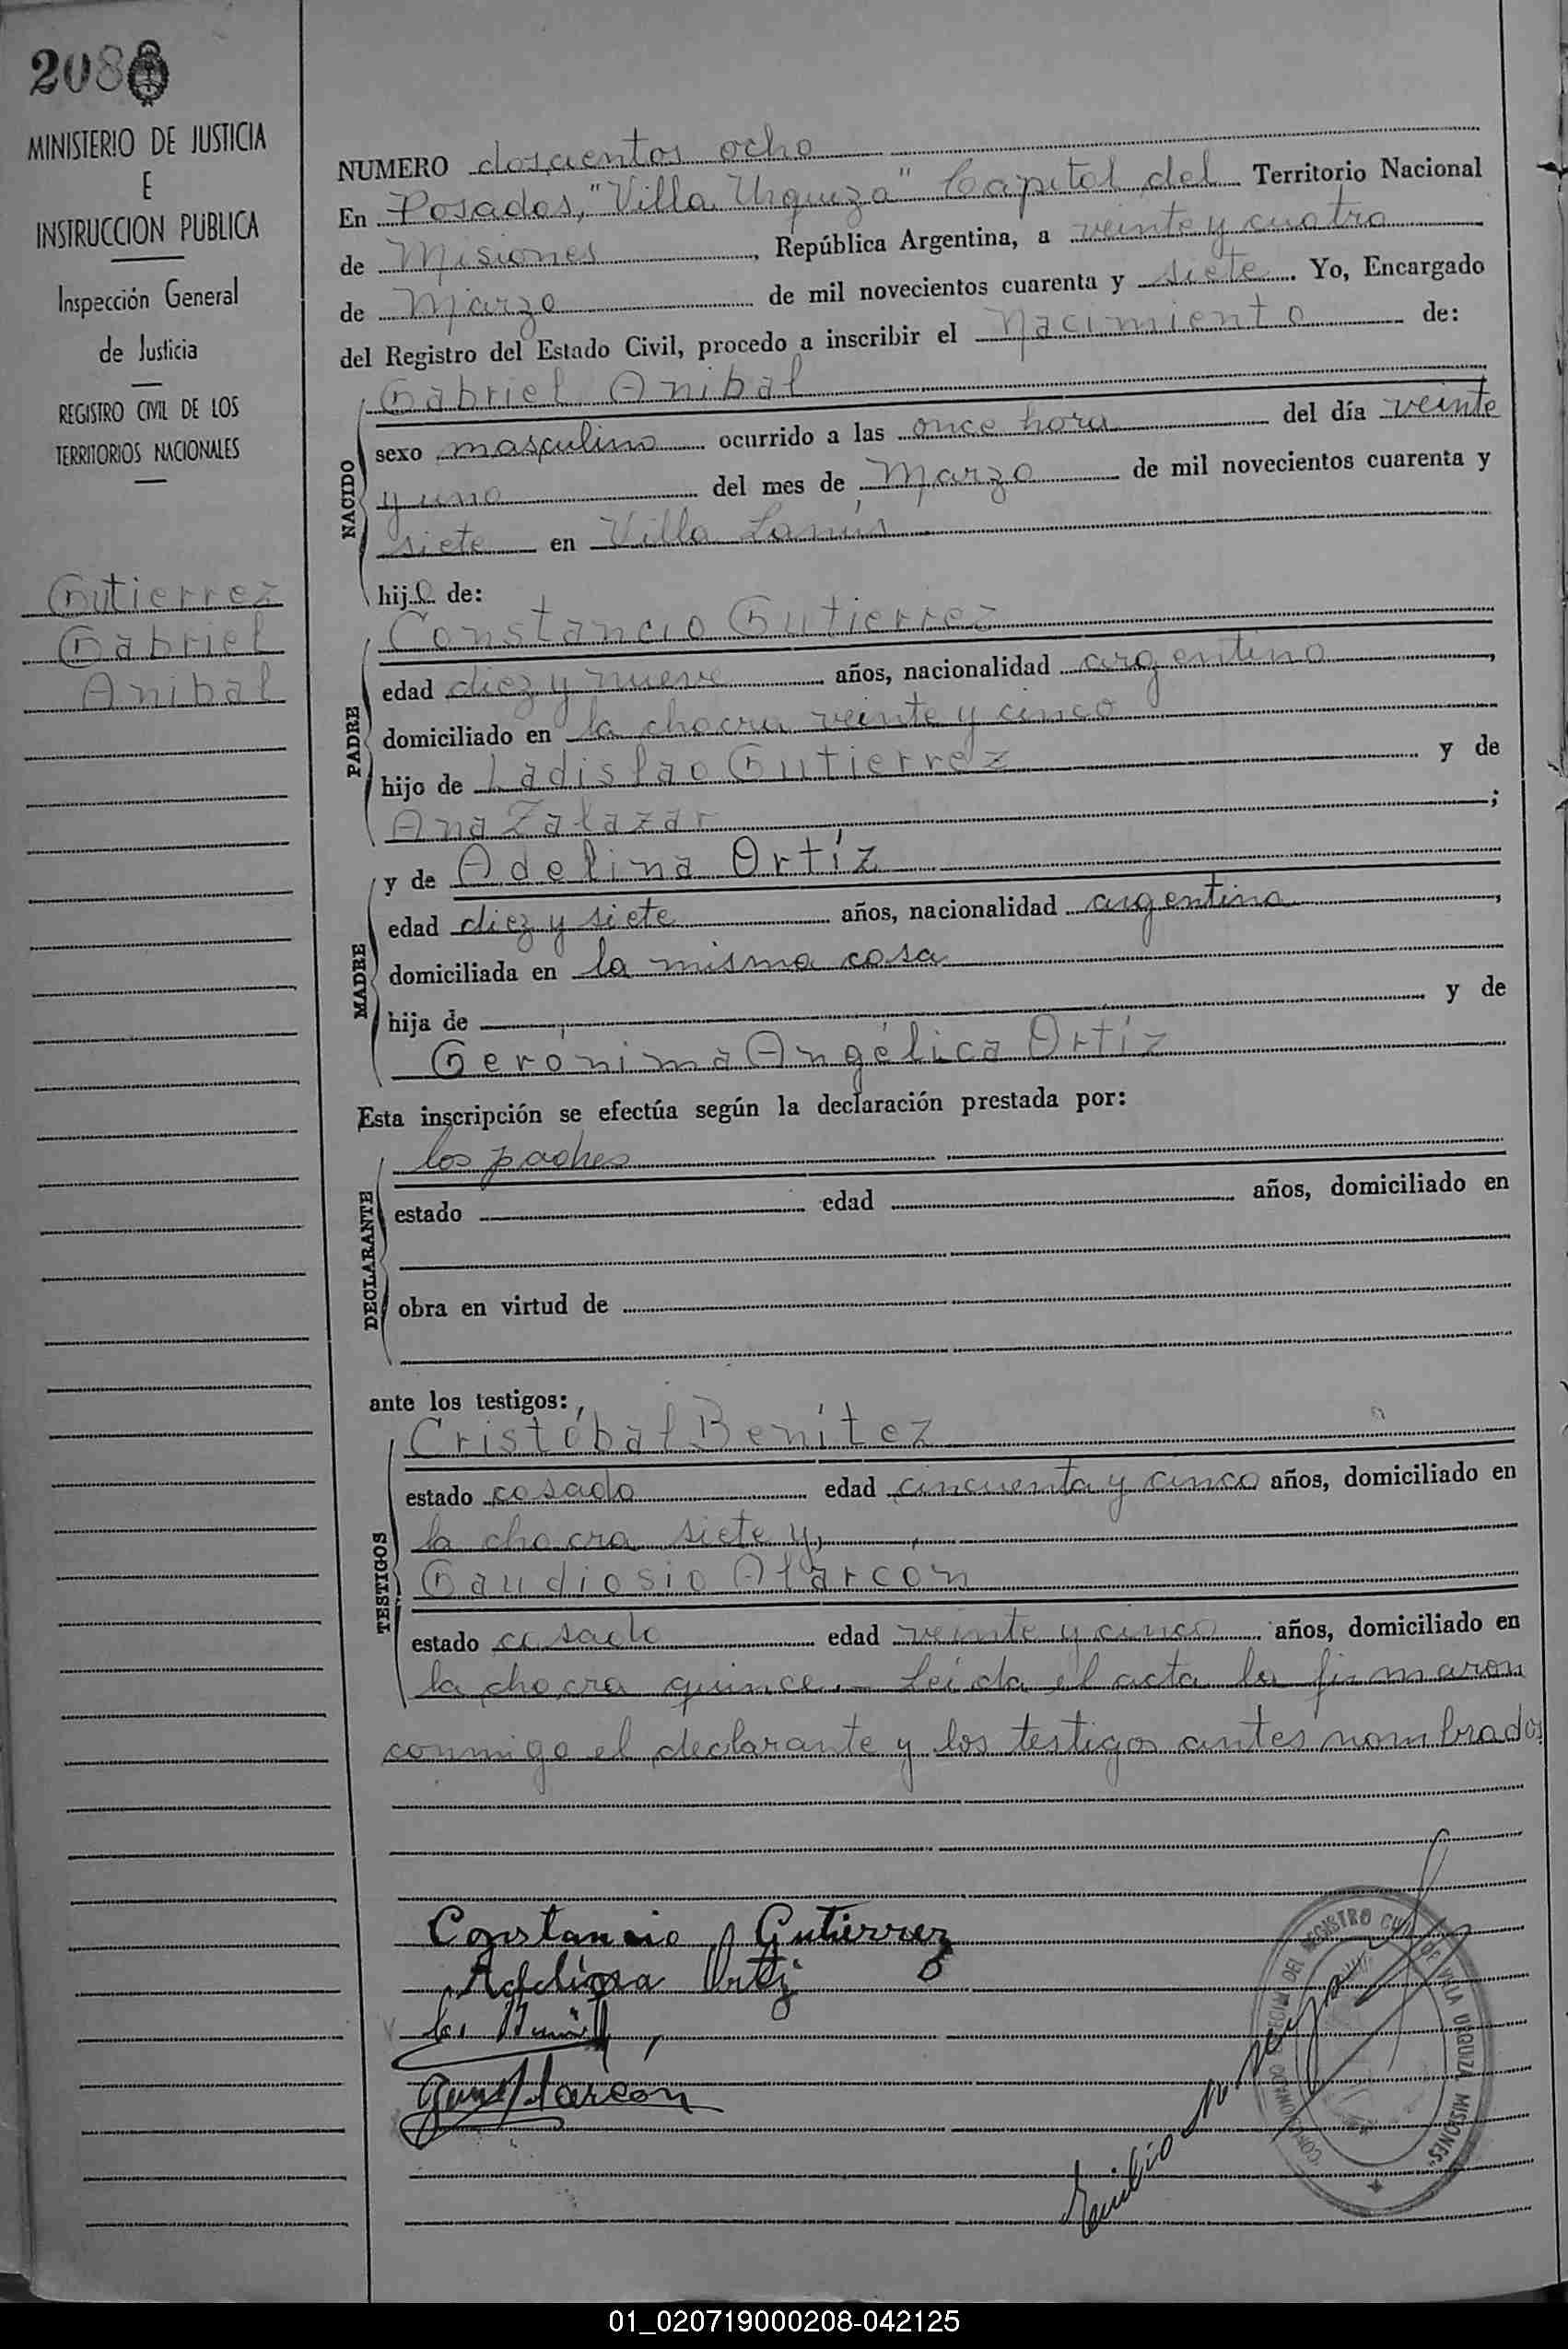 208
MINISTERIO DE JUSTICIA
E
INSTRUCCION PUBLICA
Inspección General
de Justicia
REGISTRO CIVIL DE LOS
TERRITORIOS NACIONALES
Gutierrez
Gabriel
Anibal
NUMERO doscientos ocho
En Posadas, "Villa Urquiza" Capital del Territorio Nacional
de Misiones, República Argentina, a veinte y cuatro
de Marzo de mil novecientos cuarenta y siete. Yo, Encargado
del Registro del Estado Civil, procedo a inscribir el Nacimiento de:
NACIDO
Gabriel Anibal
sexo masculino ocurrido a las once hora del día veinte
y uno del mes de Marzo de mil novecientos cuarenta y
siete en Villa Lanús
hijo de:
PADRE
Constancio Gutierrez
edad diez y nueve años, nacionalidad argentino,
domiciliado en la chacra veinte y cinco
hijo de Ladislao Gutierrez y de
Ana Zalazar;
MADRE
y de Adelina Ortíz
edad diez y siete años, nacionalidad argentina,
domiciliada en la misma casa
hija de y de
Gerónima Angélica Ortíz
Esta inscripción se efectúa según la declaración prestada por:
DECLARANTE
los padres
estado edad años, domiciliado en
obra en virtud de
ante los testigos:
TESTIGOS
Cristóbal Benítez
estado casado edad cincuenta y cinco años, domiciliado en
la chacra siete y,
Gaudiosio Alarcón
estado casado edad veinte y cinco años, domiciliado en
la chacra quince.- Leída el acta la firmaron
conmigo el declarante y los testigos antes nombrados
Constancio Gutierrez
Adelina Ortiz
Alarcón
Emilio
DEL REGISTRO CIVIL DE VILLA URQUIZA MISIONES
01_020719000208-042125